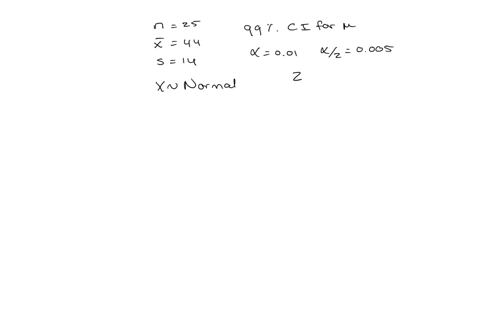 n = 25
x̄ = 44
s = 14
X ~ Normal
99% CI for μ
α = 0.01 α/2 = 0.005
Z